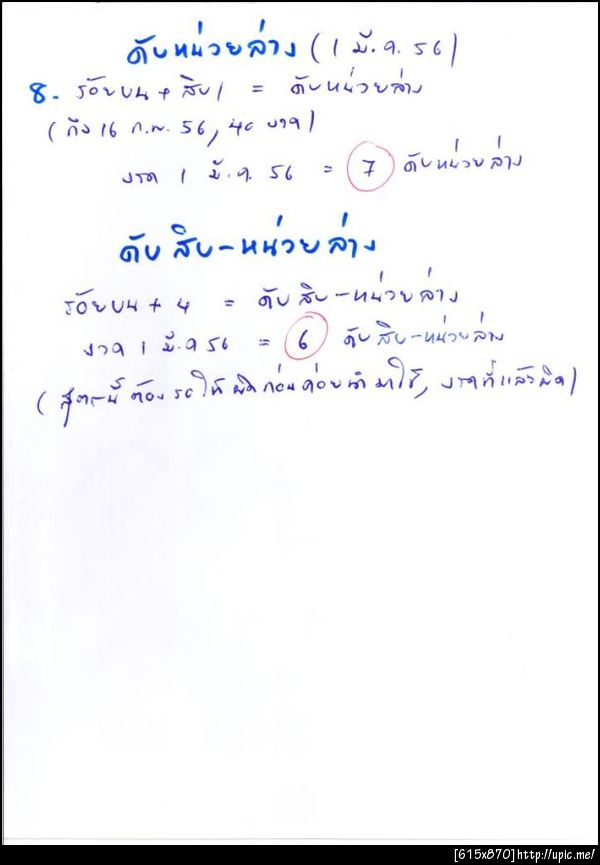 ดับหน่วยล่าง (1 มี.ค. 56)
8. ร้อยบน + สิบ = ดับหน่วยล่าง
(ถึง 16 ก.พ. 56, 40 บาท)
งวด 1 มี.ค. 56 = 7 ดับหน่วยล่าง
ดับสิบ-หน่วยล่าง
ร้อยบน + 4 = ดับสิบ-หน่วยล่าง
งวด 1 มี.ค 56 = 6 ดับสิบ-หน่วยล่าง
(สูตรนี้ต้องรอให้ผิดก่อนค่อยนำมาใช้, งวดที่แล้วผิด)
[615x870]http://upic.me/